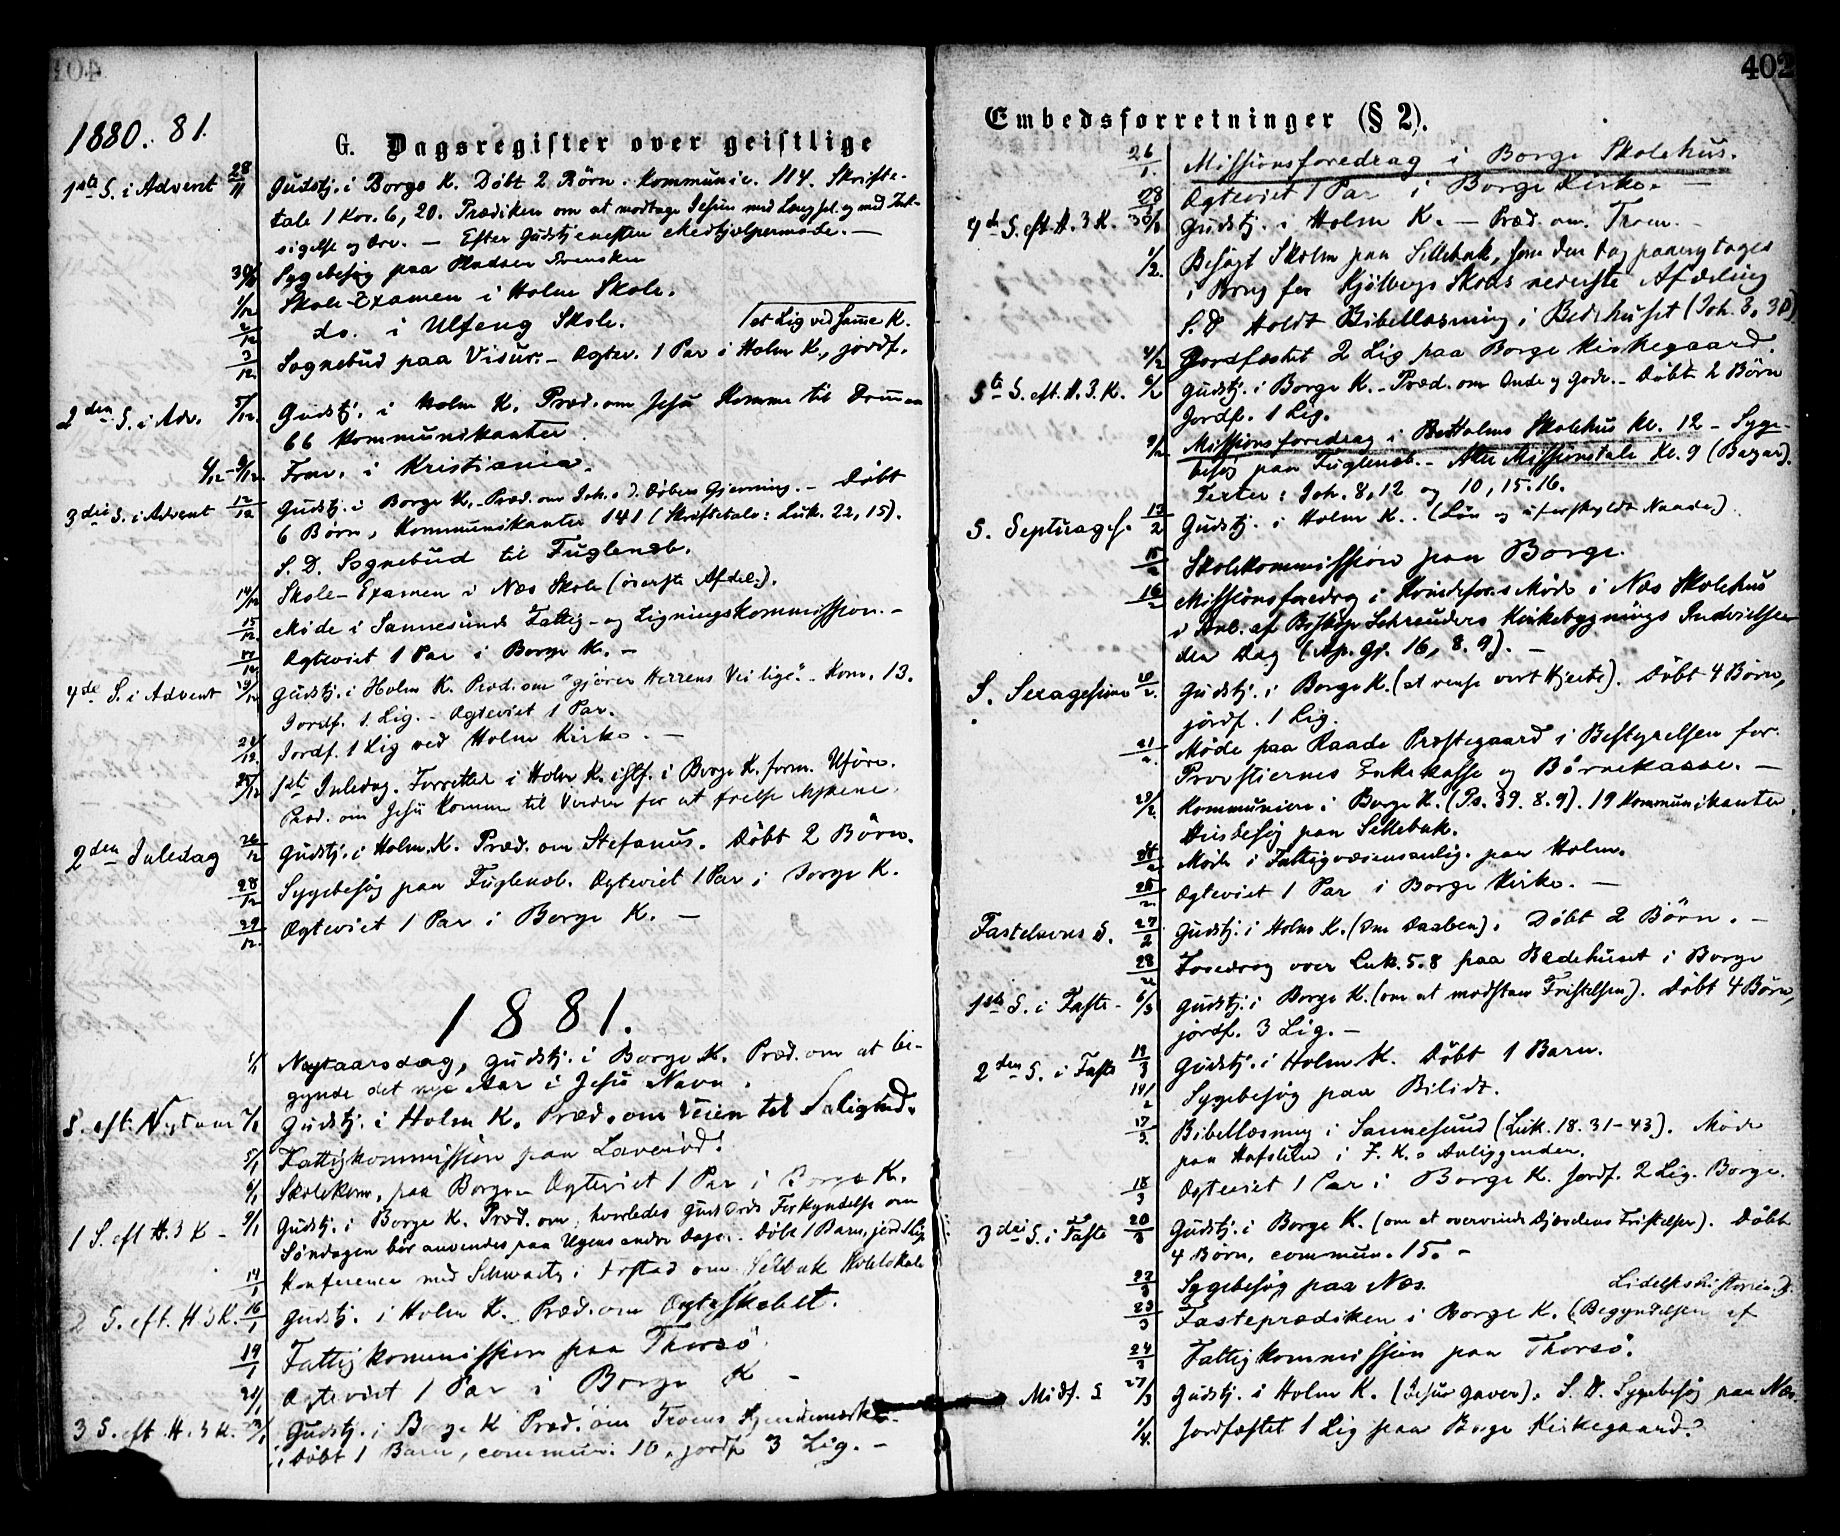 402
1880. 81.
G. Dagsregister over geistlige
1ste S. i Advent 28/11 Gudstj. i Borge K. Døbt 2 Børn. Kommunic. 114. Skrifte-
tale 1 Kor. 6, 20. Prædiken om at modtage Jesum med Længsel og med
sigelse og — Efter Gudstjenesten Medhjælpermøde. —
30/11 Sygebesøg paa Pladsen Svensken
1/12 Skole-Examen i Holm Skole.
2/12 do. i Ulfeng Skole. 1 et Lig ved samme K.
3/12 Sognebud paa Visur. - Ægtev. 1 Par i Holm K., jordf.
2den S. i Adv. 5/12 Gudstj. i Holm K. Præd. om Jesu Komme til Dommen
66 Kommunikanter
6/12 - 9/12 Frav. i Kristiania.
3die S. i Advent 12/12 Gudstj. i Borge K. Præd. om Joh. d. Døbers Gjerning. - Døbt
6 Børn, Kommunikanter 141 (Skriftetale: Luk. 22, 15).
S. D. Sognebud til Fugleneb.
14/12 Skole-Examen i Næs Skole (øverste Afdel.).
15/12 Møde i Sannesunds Fattig- og Ligningskommission. -
17/12 Ægteviet 1 Par i Borge K. -
4de S. i Advent 19/12 Gudstj. i Holm K. Præd. om "gjører Herrens Vei lige". - Kom. 13.
Jordf. 1 Lig. - Ægteviet 1 Par.
22/12 Jordf. 1 Lig ved Holm Kirke. -
25/12 1ste Juledag. Forrettet i Holm K. istf. i Borge K. form. Uføre.
Præd. om Jesu Komme til Verden for at frelse
2den Juledag 26/12 Gudstj. i Holm K. Præd. om Stefanus. Døbt 2 Børn.
28/12 Sygebesøg paa Fugleneb. Ægteviet 1 Par i Borge K.
29/12 Ægteviet 1 Par i Borge K. -
1881.
1/1 Nytaarsdag, Gudstj. i Borge K. Præd. om at be-
gynde det nye Aar i Jesu Navn.
S. eft. Nytaar 2/1 Gudstj. i Holm K. Præd. om Veien til Salighed.
5/1 Fattigkommission paa
6/1 Skolekom. paa Borge - Ægteviet 1 Par i Borge K.
1 S. eft H. 3 K - 9/1 Gudstj. i Borge K. Præd. om, hvorledes Guds Ords Forkyndelse om
Søndagen bør anvendes paa Ugens andre Dage. Døbt 1 Barn, jordf. 1 Lig.
14/1 Konference med Schwartz i Frstad om Sellebak Skolelokale
2 S. eft. H 3 K. 16/1 Gudstj. i Holm K. Præd. om Ægteskabet.
19/1 Fattigkommission paa Thorsø
21/1 Ægteviet 1 Par i Borge K -
3 S. eft. H. 3 K. 23/1 Gudstj. i Borge K Præd. om Troens Kjendemærke.
Døbt 1 Barn, commun. 10, jordf. 3 Lig. -
Embedsforretninger (§ 2).
26/1. Missionsforedrag i Borge Skolehus.
28/1 Ægteviet 1 Par i Borge Kirke. -
4de S. eft. H. 3 K. 30/1 Gudstj. i Holm K. - Præd. om Troen.
1/2. Besøgt Skolen paa Sellebak, som den Dag paany toges
i Brug for Kjølbergs Skoles nederste Afdeling
S. D Holdt Bibellæsning i Bedehuset (Joh. 3, 30)
4/2 Jordfæstet 2 Lig paa Borge Kirkegaard.
5te S. eft. H. 3. K. 6/2 Gudstj. i Borge K. - Præd. om Onde og Gode. - Døbt 2 Børn
Jordf. 1 Lig.
9/2. Missionsforedrag i Holms Skolehus Kl. 12 - Syge-
besøg paa Fugleneb. - Atter Missionstale Kl. 9 (Bazar).
Texter: Joh. 8, 12 og 10, 15. 16.
S. Septuages. 13/2 Gudstj. i Holm K. (Løn og uforskyldt Naade)
15/2 Skolekommission paa Borge.
16/2 Missionsforedrag i Kvindefor.s Møde i Næs Skolehus
i Anl. af Biskop Schreuders Kirkebygnings Indvielse
den Dag (Ap. Gj. 16, 8. 9). -
S. Sexagesima 20/2. Gudstj. i Borge K. (at rense vort Hjerte). Døbt 4 Børn,
jordf. 1 Lig.
21/2. Møde paa Raade Præstegaard i Bestyrelsen for
Provstiernes Enkekasse og Børnekasse. -
23/2 Kommunion i Borge K. (Ps. 39. 8. 9). 19 Kommunikanter
Husbesøg paa Sellebak.
24/2 Møde i Fattigvæsensanlig. paa Holm.
25/2. Ægteviet 1 Par i Borge Kirke. -
Fastelavns S. 27/2 Gudstj. i Holm K. (Om Daaben). Døbt 2 Børn. -
28/2 Foredrag over Luk. 5. 8 paa Bedehuset i Borge
1ste S. i Faste - 6/3 Gudstj. i Borge K. (om at modstaa Fristelsen). Døbt 4 Børn,
jordf. 3 Lig. -
2den S. i Faste 13/3 Gudstj. i Holm K. Døbt 1 Barn.
14/3 Sygebesøg paa Bilidt.
17/3. Bibellæsning i Sannesund (Luk. 18. 31-43). Møde
paa Hafslund i F. K.s Anliggender.
18/3 Ægteviet 1 Par i Borge K. Jordf. 2 Lig. Borge.
3die S. i Faste 20/3 Gudstj. i Borge K. (om at overvinde Djævelens Fristelser). Døbt
4 Børn, commun. 15. -
22/3 Sygebesøg paa Næs. Lidelseshistorien).
23/3 Fasteprædiken i Borge K. (Begyndelsen af
24/3 Fattigkommission paa Thorsø.
Midf. S 27/3 Gudstj. i Holm K. (Jesu Gaver). S. D. Sygebesøg paa Næs.
1/4. Jordfæstet 1 Lig paa Borge Kirkegaard.